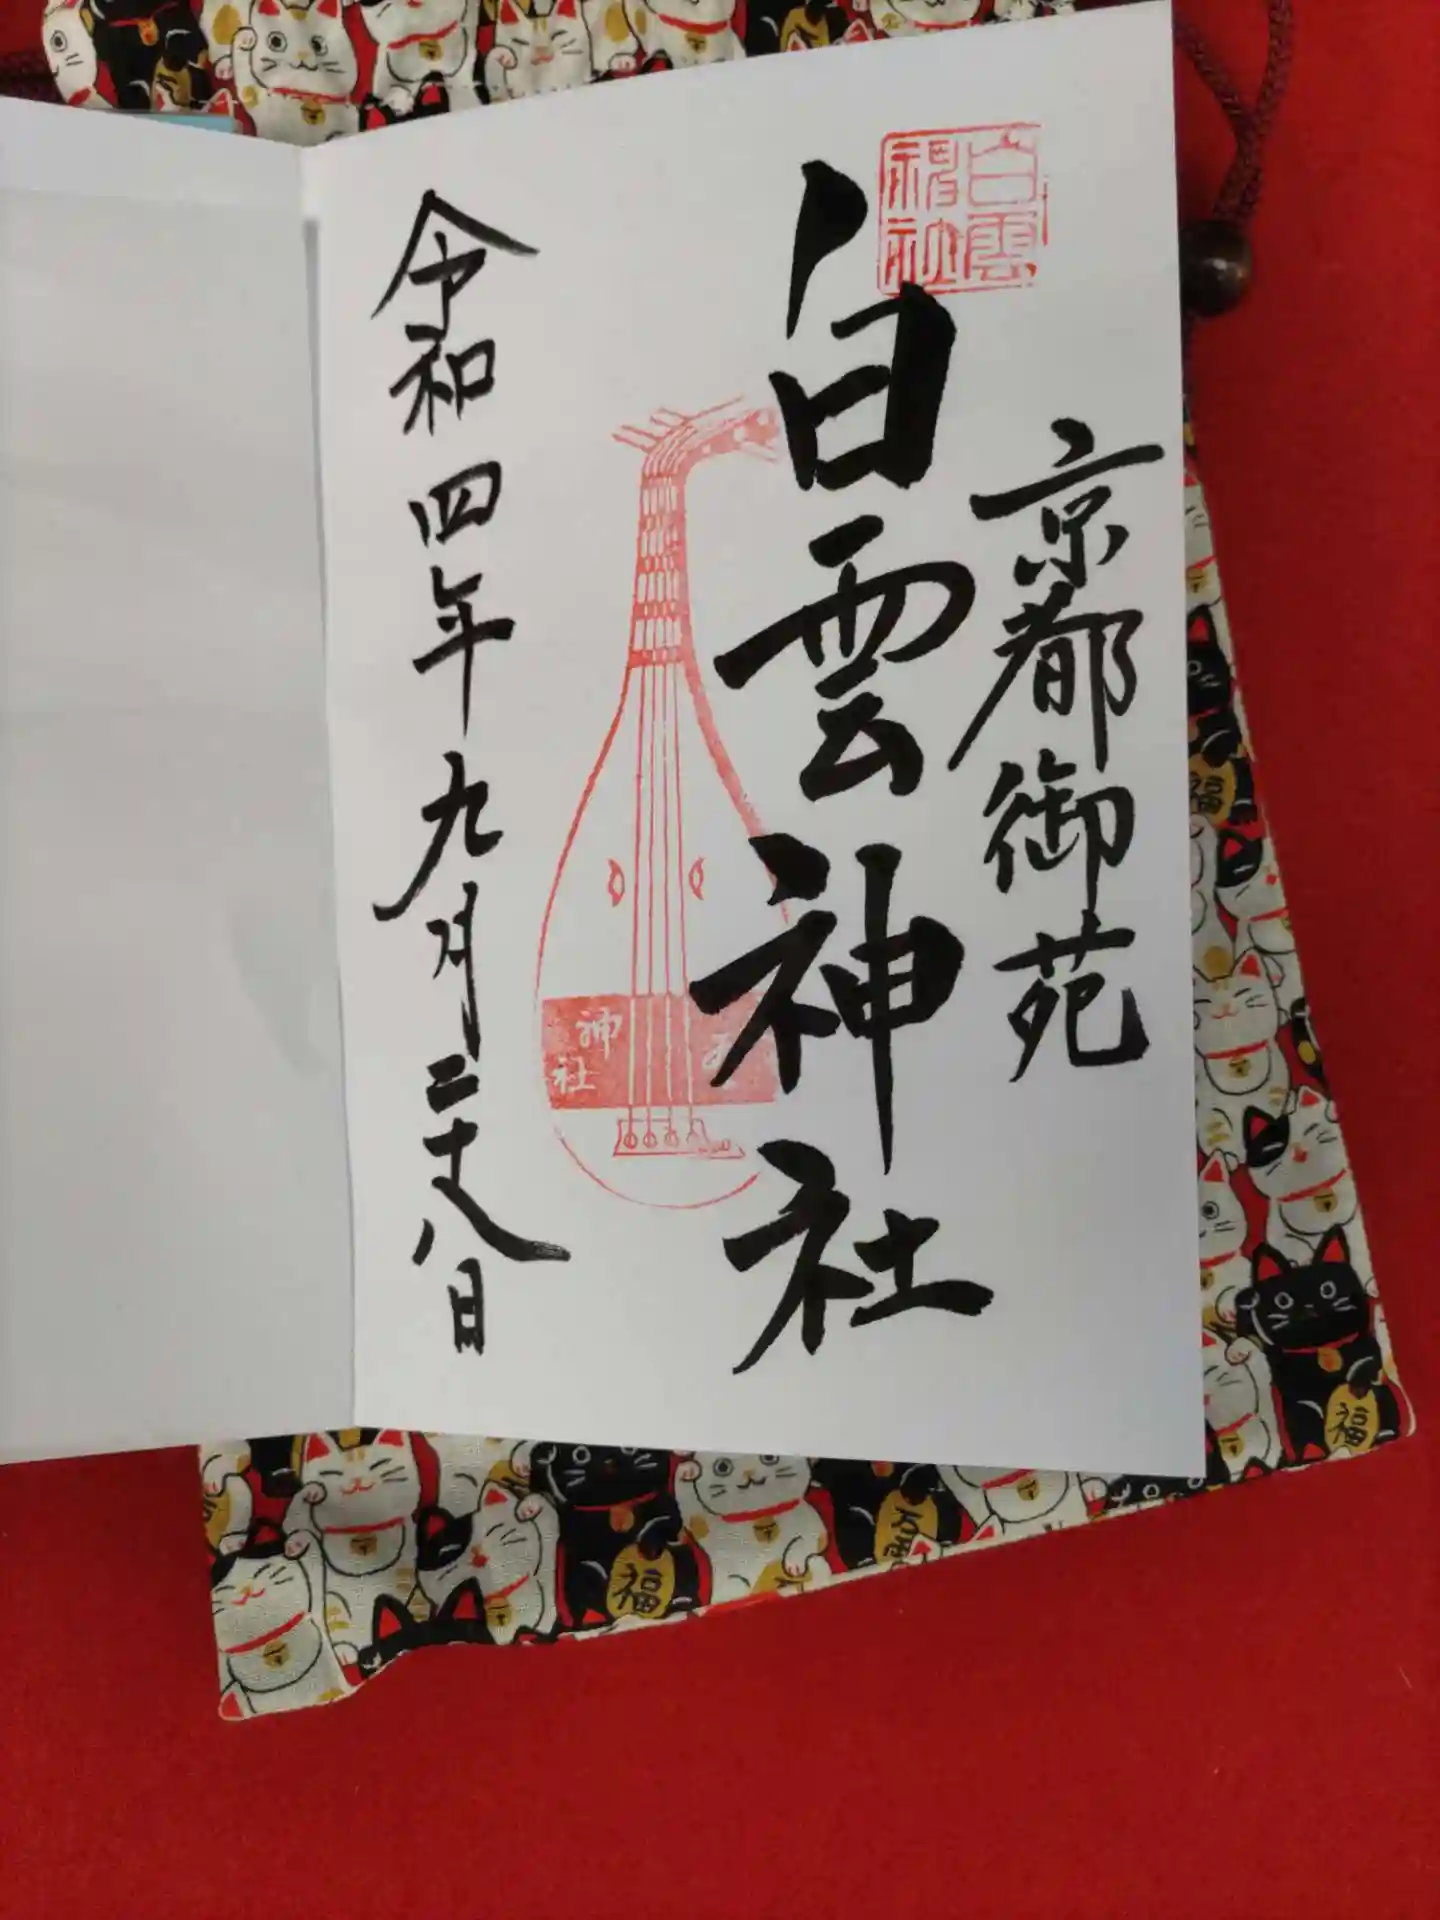 京都御苑
白雲神社
白雲
神社
神
社
令和四年九月二十八日
福
福
福